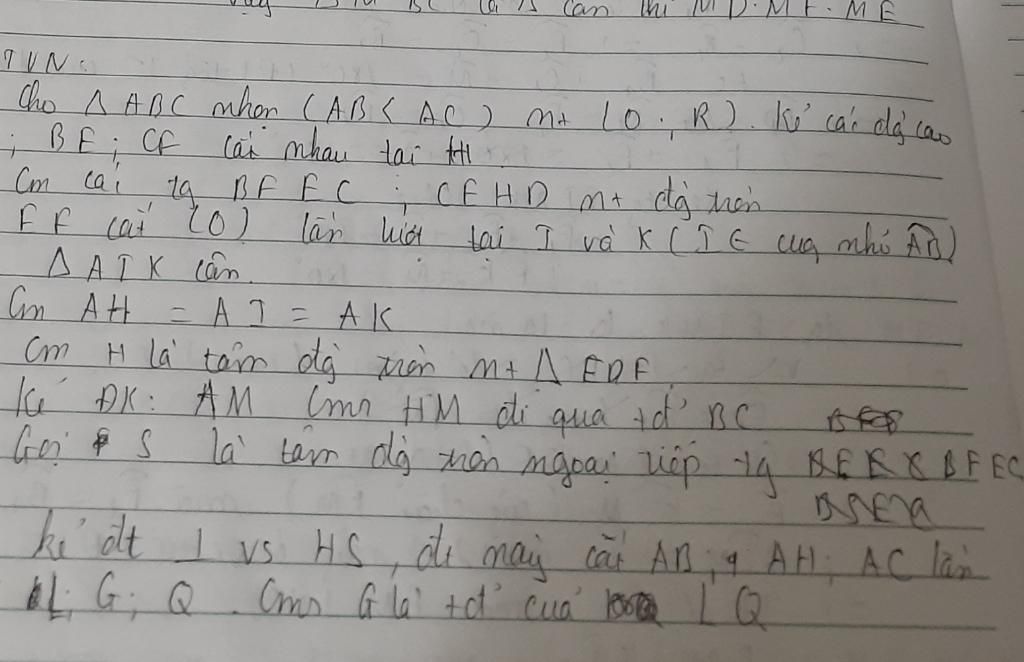 BC là Δ cân thì MD.MF.ME
TVN:
Cho Δ ABC nhọn (AB < AC) nt (O; R). Kẻ các đg cao
; BE; CF cắt nhau tại H
Cm các tg BFEC; CEHD nt đg tròn
EF cắt (O) lần lượt tại I và K (I ∈ cung nhỏ AB)
Δ AIK cân.
Cm AH = AI = AK
Cm H là tâm đg tròn nt Δ EDF
Kẻ ĐK: AM Cmr HM đi qua tđ' BC
Gọi S là tâm đg tròn ngoại tiếp tg BFEC
kẻ đt ⊥ vs HS, đt này cắt AB; AH; AC lần
L; G; Q. Cmr G là tđ' của LQ